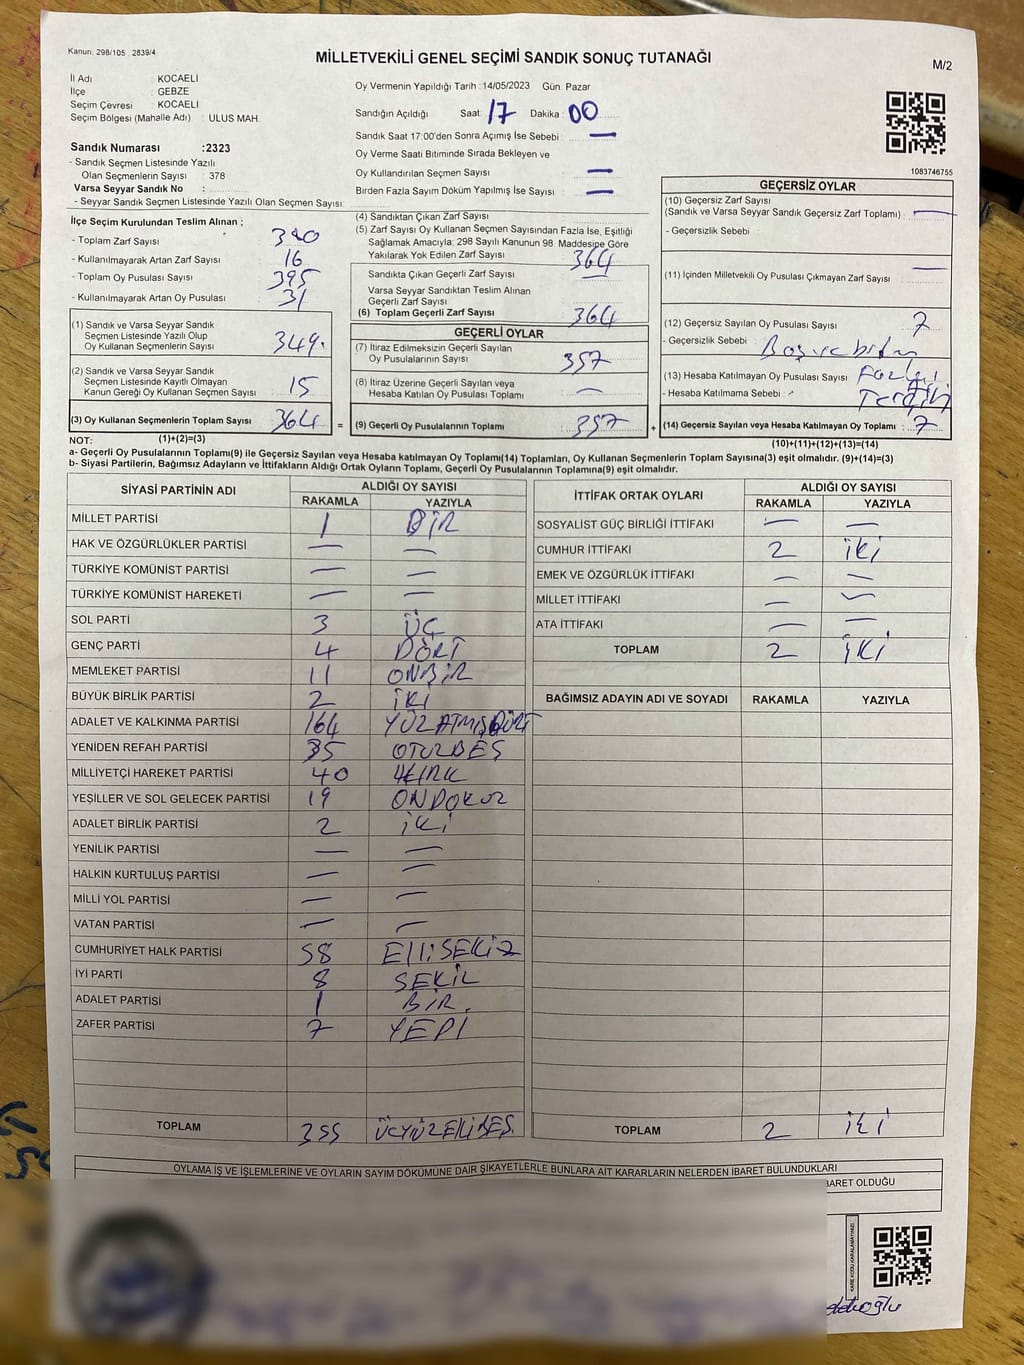 Kanun: 298/105 , 2839/4
MİLLETVEKİLİ GENEL SEÇİMİ SANDIK SONUÇ TUTANAĞI
M/2
İl Adı : KOCAELİ
İlçe : GEBZE
Seçim Çevresi : KOCAELİ
Seçim Bölgesi (Mahalle Adı) : ULUS MAH.
Sandık Numarası :2323
- Sandık Seçmen Listesinde Yazılı
Olan Seçmenlerin Sayısı : 378
Varsa Seyyar Sandık No :
- Seyyar Sandık Seçmen Listesinde Yazılı Olan Seçmen Sayısı:
Oy Vermenin Yapıldığı Tarih : 14/05/2023 Gün: Pazar
Sandığın Açıldığı Saat: 17 Dakika : 00
Sandık Saat 17:00'den Sonra Açımış İse Sebebi : —
Oy Verme Saati Bitiminde Sırada Bekleyen ve
Oy Kullandırılan Seçmen Sayısı : —
Birden Fazla Sayım Döküm Yapılmış İse Sayısı : —
1083746755
İlçe Seçim Kurulundan Teslim Alınan ;
- Toplam Zarf Sayısı : 380
- Kullanılmayarak Artan Zarf Sayısı : 16
- Toplam Oy Pusulası Sayısı : 395
- Kullanılmayarak Artan Oy Pusulası : 31
(1) Sandık ve Varsa Seyyar Sandık
Seçmen Listesinde Yazılı Olup
Oy Kullanan Seçmenlerin Sayısı : 349.
(2) Sandık ve Varsa Seyyar Sandık
Seçmen Listesinde Kayıtlı Olmayan
Kanun Gereği Oy Kullanan Seçmen Sayısı : 15
(3) Oy Kullanan Seçmenlerin Toplam Sayısı : 364 =
(4) Sandıktan Çıkan Zarf Sayısı :
(5) Zarf Sayısı Oy Kullanan Seçmen Sayısından Fazla İse, Eşitliği
Sağlamak Amacıyla; 298 Sayılı Kanunun 98. Maddesine Göre
Yakılarak Yok Edilen Zarf Sayısı : 364
Sandıkta Çıkan Geçerli Zarf Sayısı : —
Varsa Seyyar Sandıktan Teslim Alınan
Geçerli Zarf Sayısı :
(6) Toplam Geçerli Zarf Sayısı : 364
GEÇERLİ OYLAR
(7) İtiraz Edilmeksizin Geçerli Sayılan
Oy Pusulalarının Sayısı : 357
(8) İtiraz Üzerine Geçerli Sayılan veya
Hesaba Katılan Oy Pusulası Toplamı : —
(9) Geçerli Oy Pusulalarının Toplamı : 357 +
GEÇERSİZ OYLAR
(10) Geçersiz Zarf Sayısı
(Sandık ve Varsa Seyyar Sandık Geçersiz Zarf Toplamı) : —
- Geçersizlik Sebebi :
(11) İçinden Milletvekili Oy Pusulası Çıkmayan Zarf Sayısı : —
(12) Geçersiz Sayılan Oy Pusulası Sayısı : 7
- Geçersizlik Sebebi : Boş ve birden
(13) Hesaba Katılmayan Oy Pusulası Sayısı : Fazla
- Hesaba Katılmama Sebebi : Tercih
(14) Geçersiz Sayılan veya Hesaba Katılmayan Oy Toplamı : 7
NOT: (1)+(2)=(3) (10)+(11)+(12)+(13)=(14)
a- Geçerli Oy Pusulalarının Toplamı(9) ile Geçersiz Sayılan veya Hesaba katılmayan Oy Toplamı(14) Toplamları, Oy Kullanan Seçmenlerin Toplam Sayısına(3) eşit olmalıdır. (9)+(14)=(3)
b- Siyasi Partilerin, Bağımsız Adayların ve İttifakların Aldığı Ortak Oyların Toplamı, Geçerli Oy Pusulalarının Toplamına(9) eşit olmalıdır.
SİYASİ PARTİNİN ADI ALDIĞI OY SAYISI
RAKAMLA YAZIYLA
MİLLET PARTİSİ 1 BİR
HAK VE ÖZGÜRLÜKLER PARTİSİ — —
TÜRKİYE KOMÜNİST PARTİSİ — —
TÜRKİYE KOMÜNİST HAREKETİ — —
SOL PARTİ 3 ÜÇ
GENÇ PARTİ 4 DÖRT
MEMLEKET PARTİSİ 11 ONBİR
BÜYÜK BİRLİK PARTİSİ 2 İKİ
ADALET VE KALKINMA PARTİSİ 164 YÜZATMIŞDÖRT
YENİDEN REFAH PARTİSİ 35 OTUZBEŞ
MİLLİYETÇİ HAREKET PARTİSİ 40 KIRK
YEŞİLLER VE SOL GELECEK PARTİSİ 19 ONDOKUZ
ADALET BİRLİK PARTİSİ 2 İKİ
YENİLİK PARTİSİ — —
HALKIN KURTULUŞ PARTİSİ — —
MİLLİ YOL PARTİSİ — —
VATAN PARTİSİ — —
CUMHURİYET HALK PARTİSİ 58 ELLİSEKİZ
İYİ PARTİ 8 SEKİZ
ADALET PARTİSİ 1 BİR.
ZAFER PARTİSİ 7 YEDİ
TOPLAM 355 ÜÇYÜZELLİBEŞ
İTTİFAK ORTAK OYLARI ALDIĞI OY SAYISI
RAKAMLA YAZIYLA
SOSYALİST GÜÇ BİRLİĞİ İTTİFAKI — —
CUMHUR İTTİFAKI 2 İKİ
EMEK VE ÖZGÜRLÜK İTTİFAKI — —
MİLLET İTTİFAKI — —
ATA İTTİFAKI — —
TOPLAM 2 İKİ
BAĞIMSIZ ADAYIN ADI VE SOYADI RAKAMLA YAZIYLA
TOPLAM 2 İKİ
OYLAMA İŞ VE İŞLEMLERİNE VE OYLARIN SAYIM DÖKÜMÜNE DAİR ŞİKAYETLERLE BUNLARA AİT KARARLARIN NELERDEN İBARET BULUNDUKLARI
BARET OLDUĞU
KARE KODU KARALAMAYINIZ!